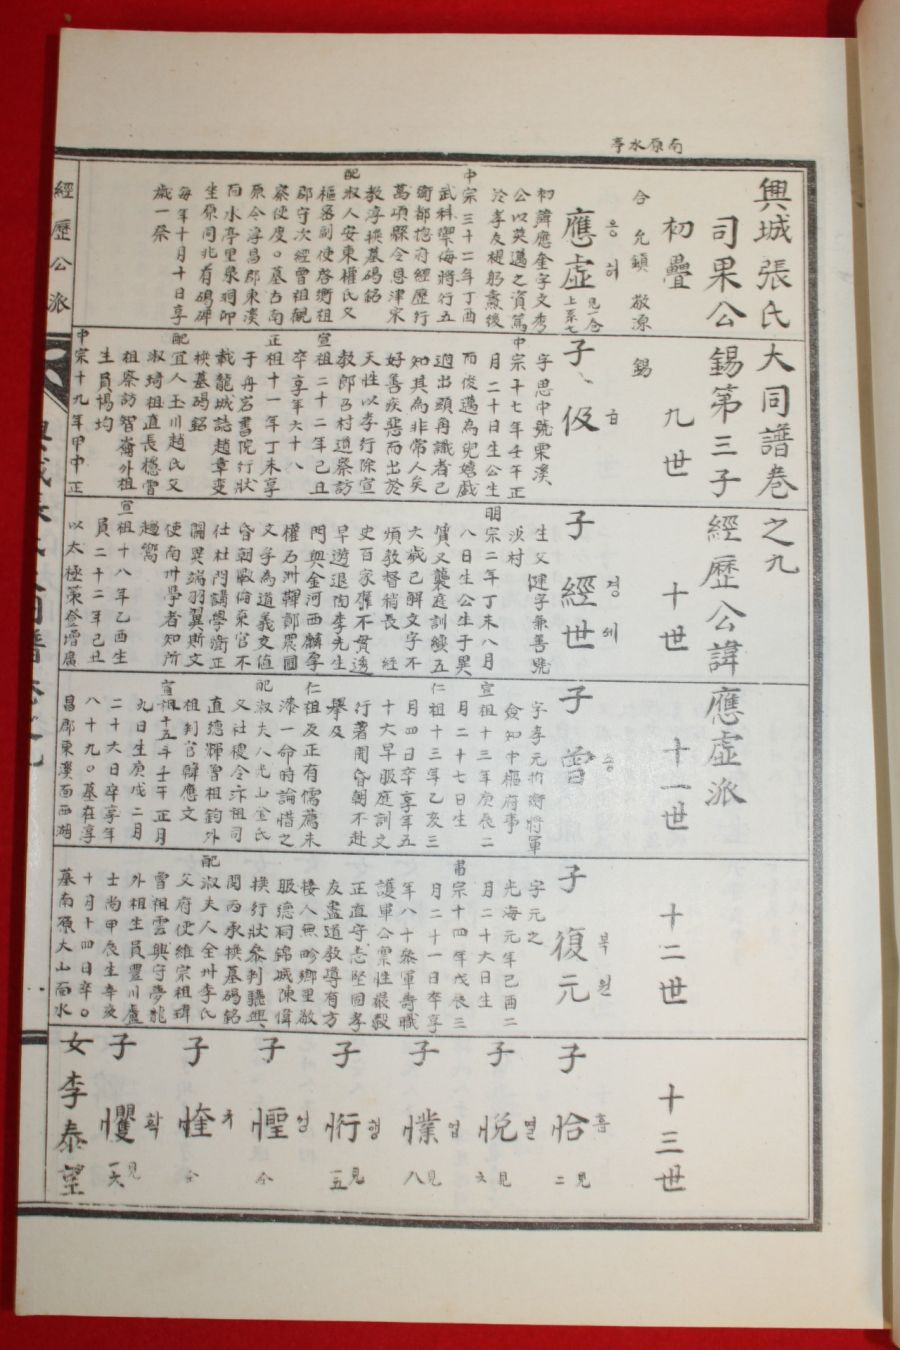 南原水亭
興城張氏大同譜卷之九
司果公錫第三子經歷公諱應虛派
初疊 九世 十世 十一世 十二世 十三世
合 允鎭 敬源 錫
應虛
응허
見一合
上系七
初諱應奎字文秀
公以英邁之資篤
於孝友
中宗三十二年丁酉
武科禦侮將行五
衛都摠府經歷行
萬頃縣令恩津宋
教淳撰墓碣銘
配淑人安東權氏父
郡守次經曾祖觀
每年十月十日享
歲一祭
子 伋
급
字思中號栗溪
中宗十七年壬午正
月二十日生公生
而俊邁為兒嬉戲
適出頭角識者已
知其為非常人矣
好善疾惡而出於
天性以孝行除宣
教郎召村道察訪
宣祖二十二年己丑
卒享年六十八
正祖十一年丁未享
于舟岩書院行狀
載龍城誌趙章燮
撰墓碣銘
配宜人玉川趙氏父
淑琦祖直長穩曾
祖察訪智崙外祖
生員楊均
中宗十九年甲申正
子 經世
경세
生父健字兼善號
汝村
明宗二年丁未八月
八日生公生于異
質又襲庭訓纔五
六歲已解文字不
煩敎督稍長 經
史百家靡不貫透
早遊退陶李先生
門與金河西麟厚
文字為道義交值
昏朝斁倫棄官不
仕杜門講學衛正
闢異端羽翼斯文
使南州學者知所
趨嚮
宣祖十八年乙酉生
員二十二年己丑
以太極策登增廣
子 曾
증
字孝元折衝將軍
僉知中樞府事
宣祖十三年庚辰二
月二十七日生
仁祖十三年乙亥三
月四日卒享年五
十六早服庭訓文
行著聞昏朝不赴
舉及
仁祖反正有儒薦未
漆一命時論惜之
配淑夫人光山金氏
父社稷令汴祖司
直德輝曾祖鈞外
祖判官韓應文
宣祖十五年壬午正月
九日生庚戌二月
二十六日卒享年
八十九〇墓在淳
昌郡東溪面西湖
子 復元
복원
字元之
光海元年己酉二
月二十六日生
肅宗十四年戊辰三
月二十一日卒享
年八十參軍壽職
護軍公稟性嚴毅
正直守志堅固孝
友盡道教導有方
接人無畛鄉里敬
服德祠錦城陳偉
撰行狀參判驪興
閔丙承撰墓碣銘
配淑夫人全州李氏
父府使維宗祖瑋
曾祖雲興守夢龍
外祖生員豐川盧
士尚甲辰生辛亥
十月十四日卒〇
墓南原大山面水
子 恰 흡 見二
子 悅 열 見六
子 㦡 업 見八
子 㤚 형 見五
子 悜 정 仝
子 㤞 규 仝
子 戄 확 見一六
女李泰望
經歷公派